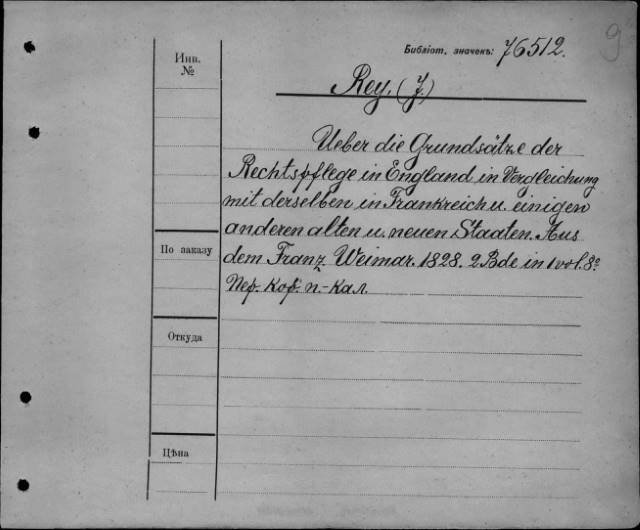 9
Библіот. значекъ: 76512.
Инв. №
Rey, (J.)
Ueber die Grundsätze der
Rechtspflege in England in Vergleichung
mit derselben in Frankreich u. einigen
anderen alten u. neuen Staaten. Aus
По заказу
dem Franz. Weimar. 1828. 2 Bde in 1 vol. 8º
Пер. кор. п.-кал.
Откуда
Цѣна